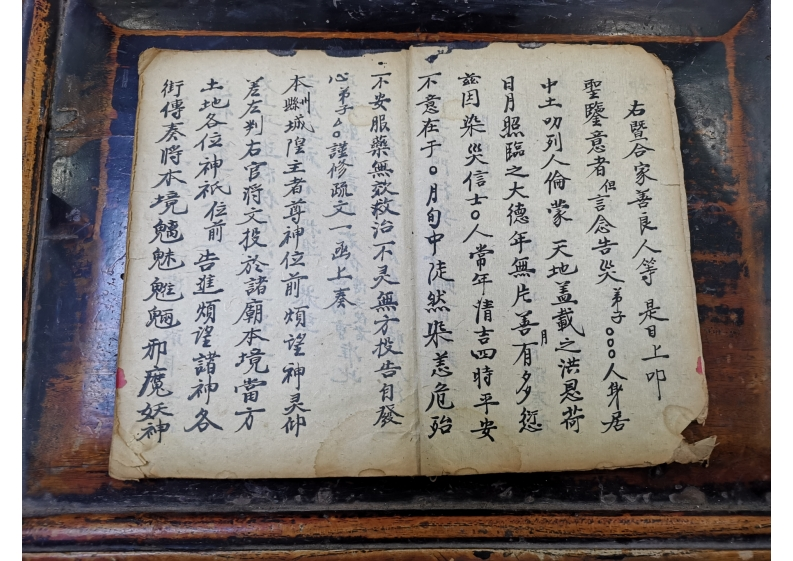 右暨合家善良人等 是日上叩
聖鑒意者但言念告災弟子〇〇〇人身居
中土叨列人倫蒙 天地盖載之洪恩荷
日月照臨之大德年無片善月有多愆
茲因染災信士〇人常年情吉四時平安
不意在于〇月旬中徒然染恙危殆
不安服藥無效救治不灵無方投告自發
心弟子〇〇謹修疏文一函上奏
本州縣城隍主者尊神位前煩望神灵仰
差左判右官將文投於諸廟本境當方
土地各位神祇位前 告進煩望諸神各
街傳奏將本境魑魅魍魎邪魔妖神